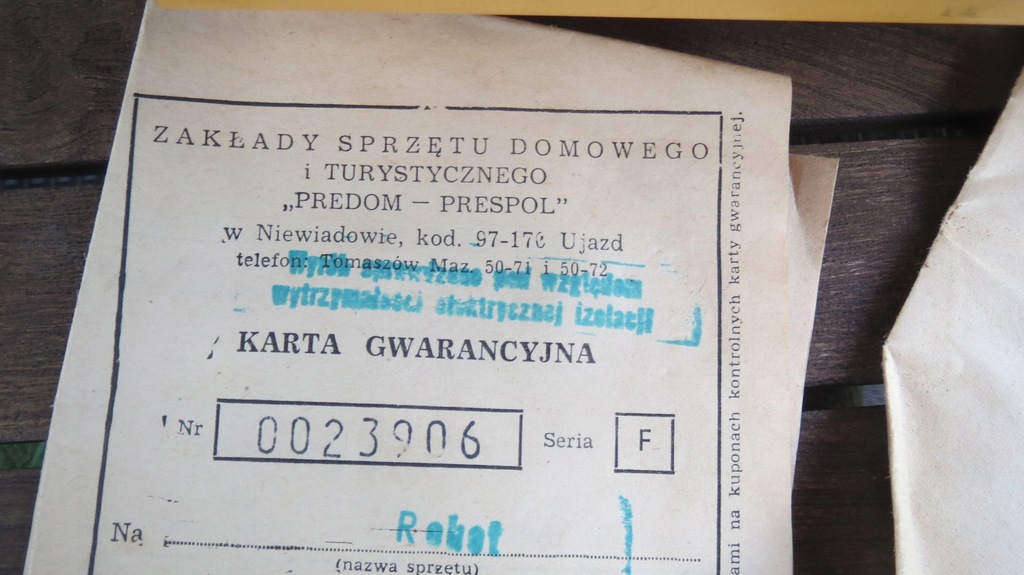 ZAKŁADY SPRZĘTU DOMOWEGO
i TURYSTYCZNEGO
„PREDOM — PRESPOL”
w Niewiadowie, kod. 97-170 Ujazd
telefon: Tomaszów Maz. 50-71 i 50-72
pod względem
wytrzymałości elektrycznej izolacji
KARTA GWARANCYJNA
Nr 0023906 Seria F
Na Robot
(nazwa sprzętu)
ami na kuponach kontrolnych karty gwarancyjnej.